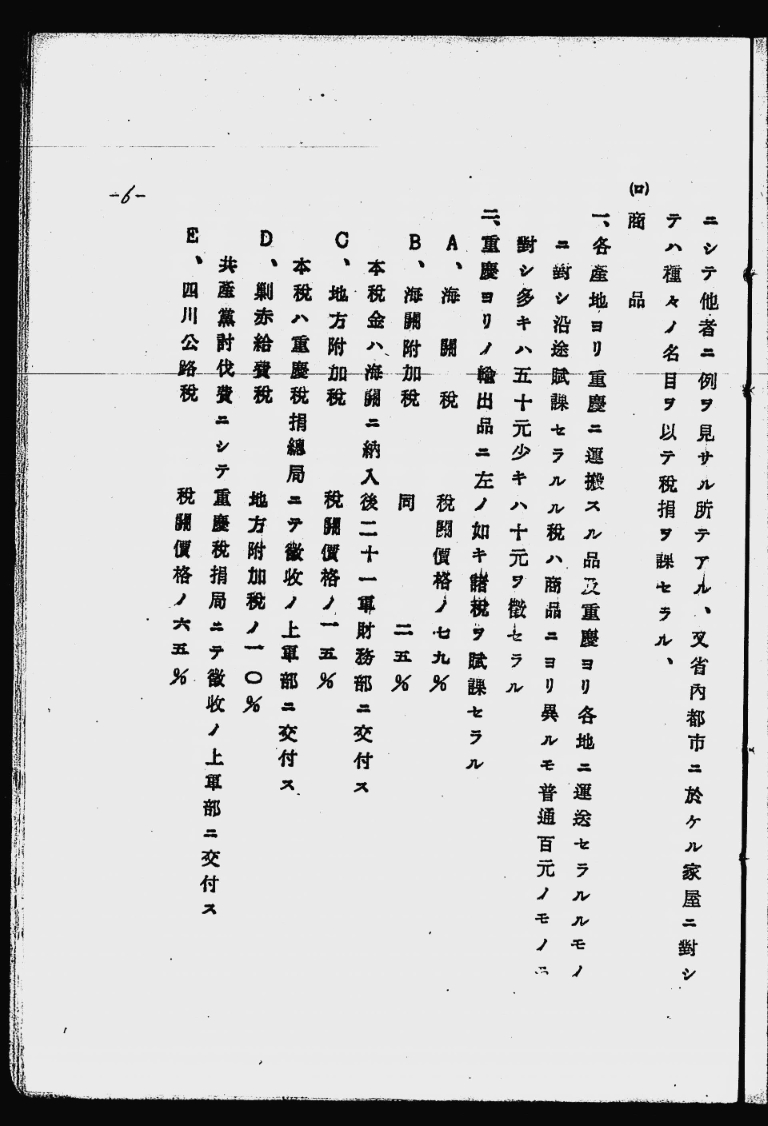 ニシテ他者ニ例ヲ見サル所テアル、又省內都市ニ於ケル家屋ニ對シ
テハ種々ノ名目ヲ以テ稅捐ヲ課セラル、
(ロ) 商品
一、各產地ヨリ重慶ニ運搬スル品及重慶ヨリ各地ニ運送セラルルモノ
ニ對シ沿途賦課セラルル稅ハ商品ニヨリ異ルモ普通百元ノモノニ
對シ多キハ五十元少キハ十元ヲ徵セラル
二、重慶ヨリノ輸出品ニ左ノ如キ諸稅ヲ賦課セラル
A、海關稅 稅關價格ノ七九%
B、海關附加稅 同 二五%
本稅金ハ海關ニ納入後二十一軍財務部ニ交付ス
C、地方附加稅 稅關價格ノ一五%
本稅ハ重慶稅捐總局ニテ徵收ノ上軍部ニ交付ス
D、剿赤給費稅 地方附加稅ノ一〇%
共產黨討伐費ニシテ重慶稅捐局ニテ徵收ノ上軍部ニ交付ス
E、四川公路稅 稅關價格ノ六五%
-6-